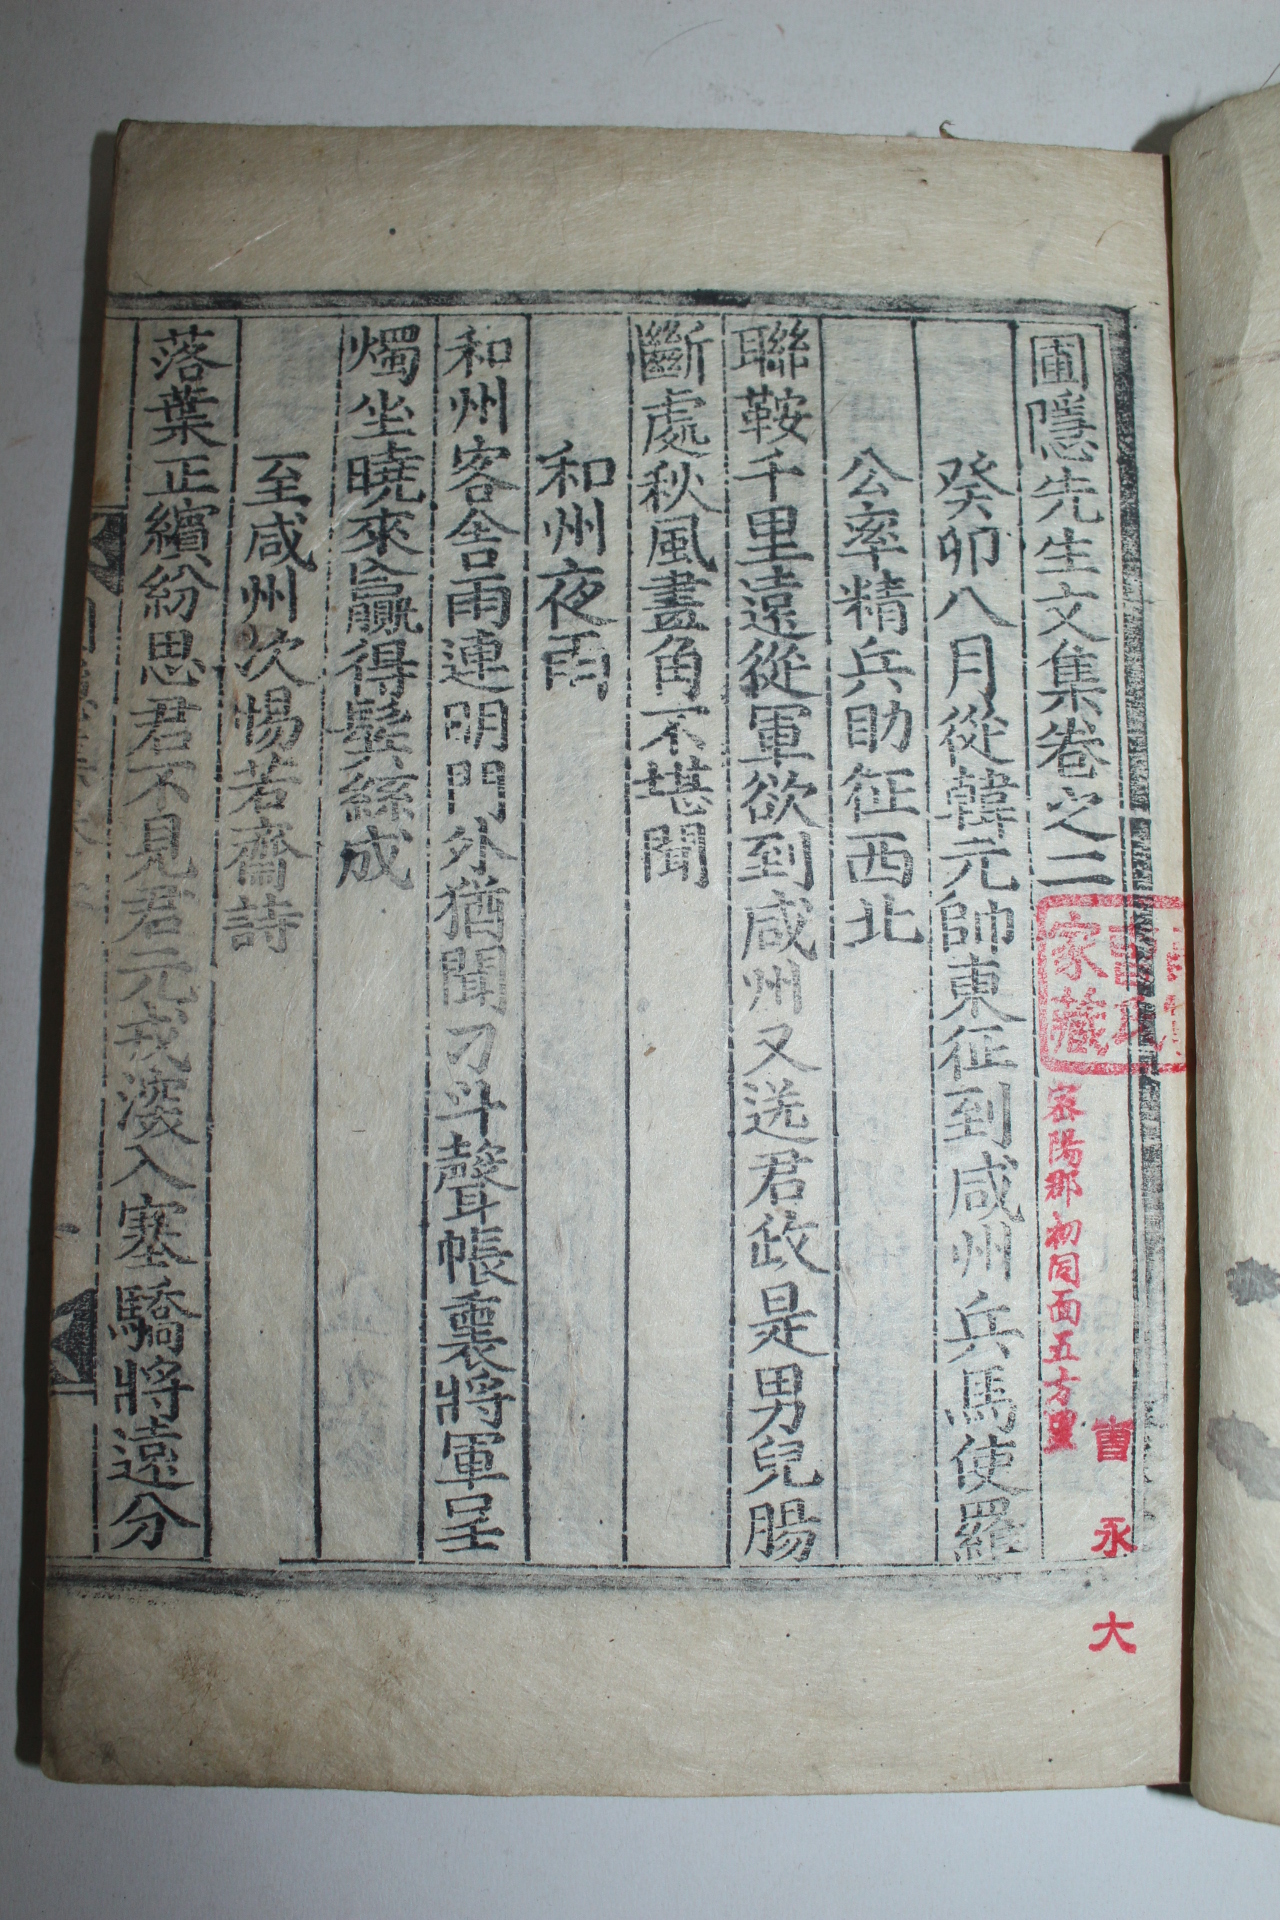 圃隱先生文集卷之二
癸卯八月從韓元帥東征到咸州兵馬使羅
公率精兵助征西北
聯鞍千里遠從軍欲到咸州又送君政是男兒腸
斷處秋風畫角不堪聞
和州夜雨
和州客舍雨連明門外猶聞刁斗聲帳裏將軍呈
燭坐曉來贏得鬢絲成
至咸州次惕若齋詩
落葉正繽紛思君不見君元戎深入塞驕將遠分
家藏
密陽郡初同面五方里
曺永大